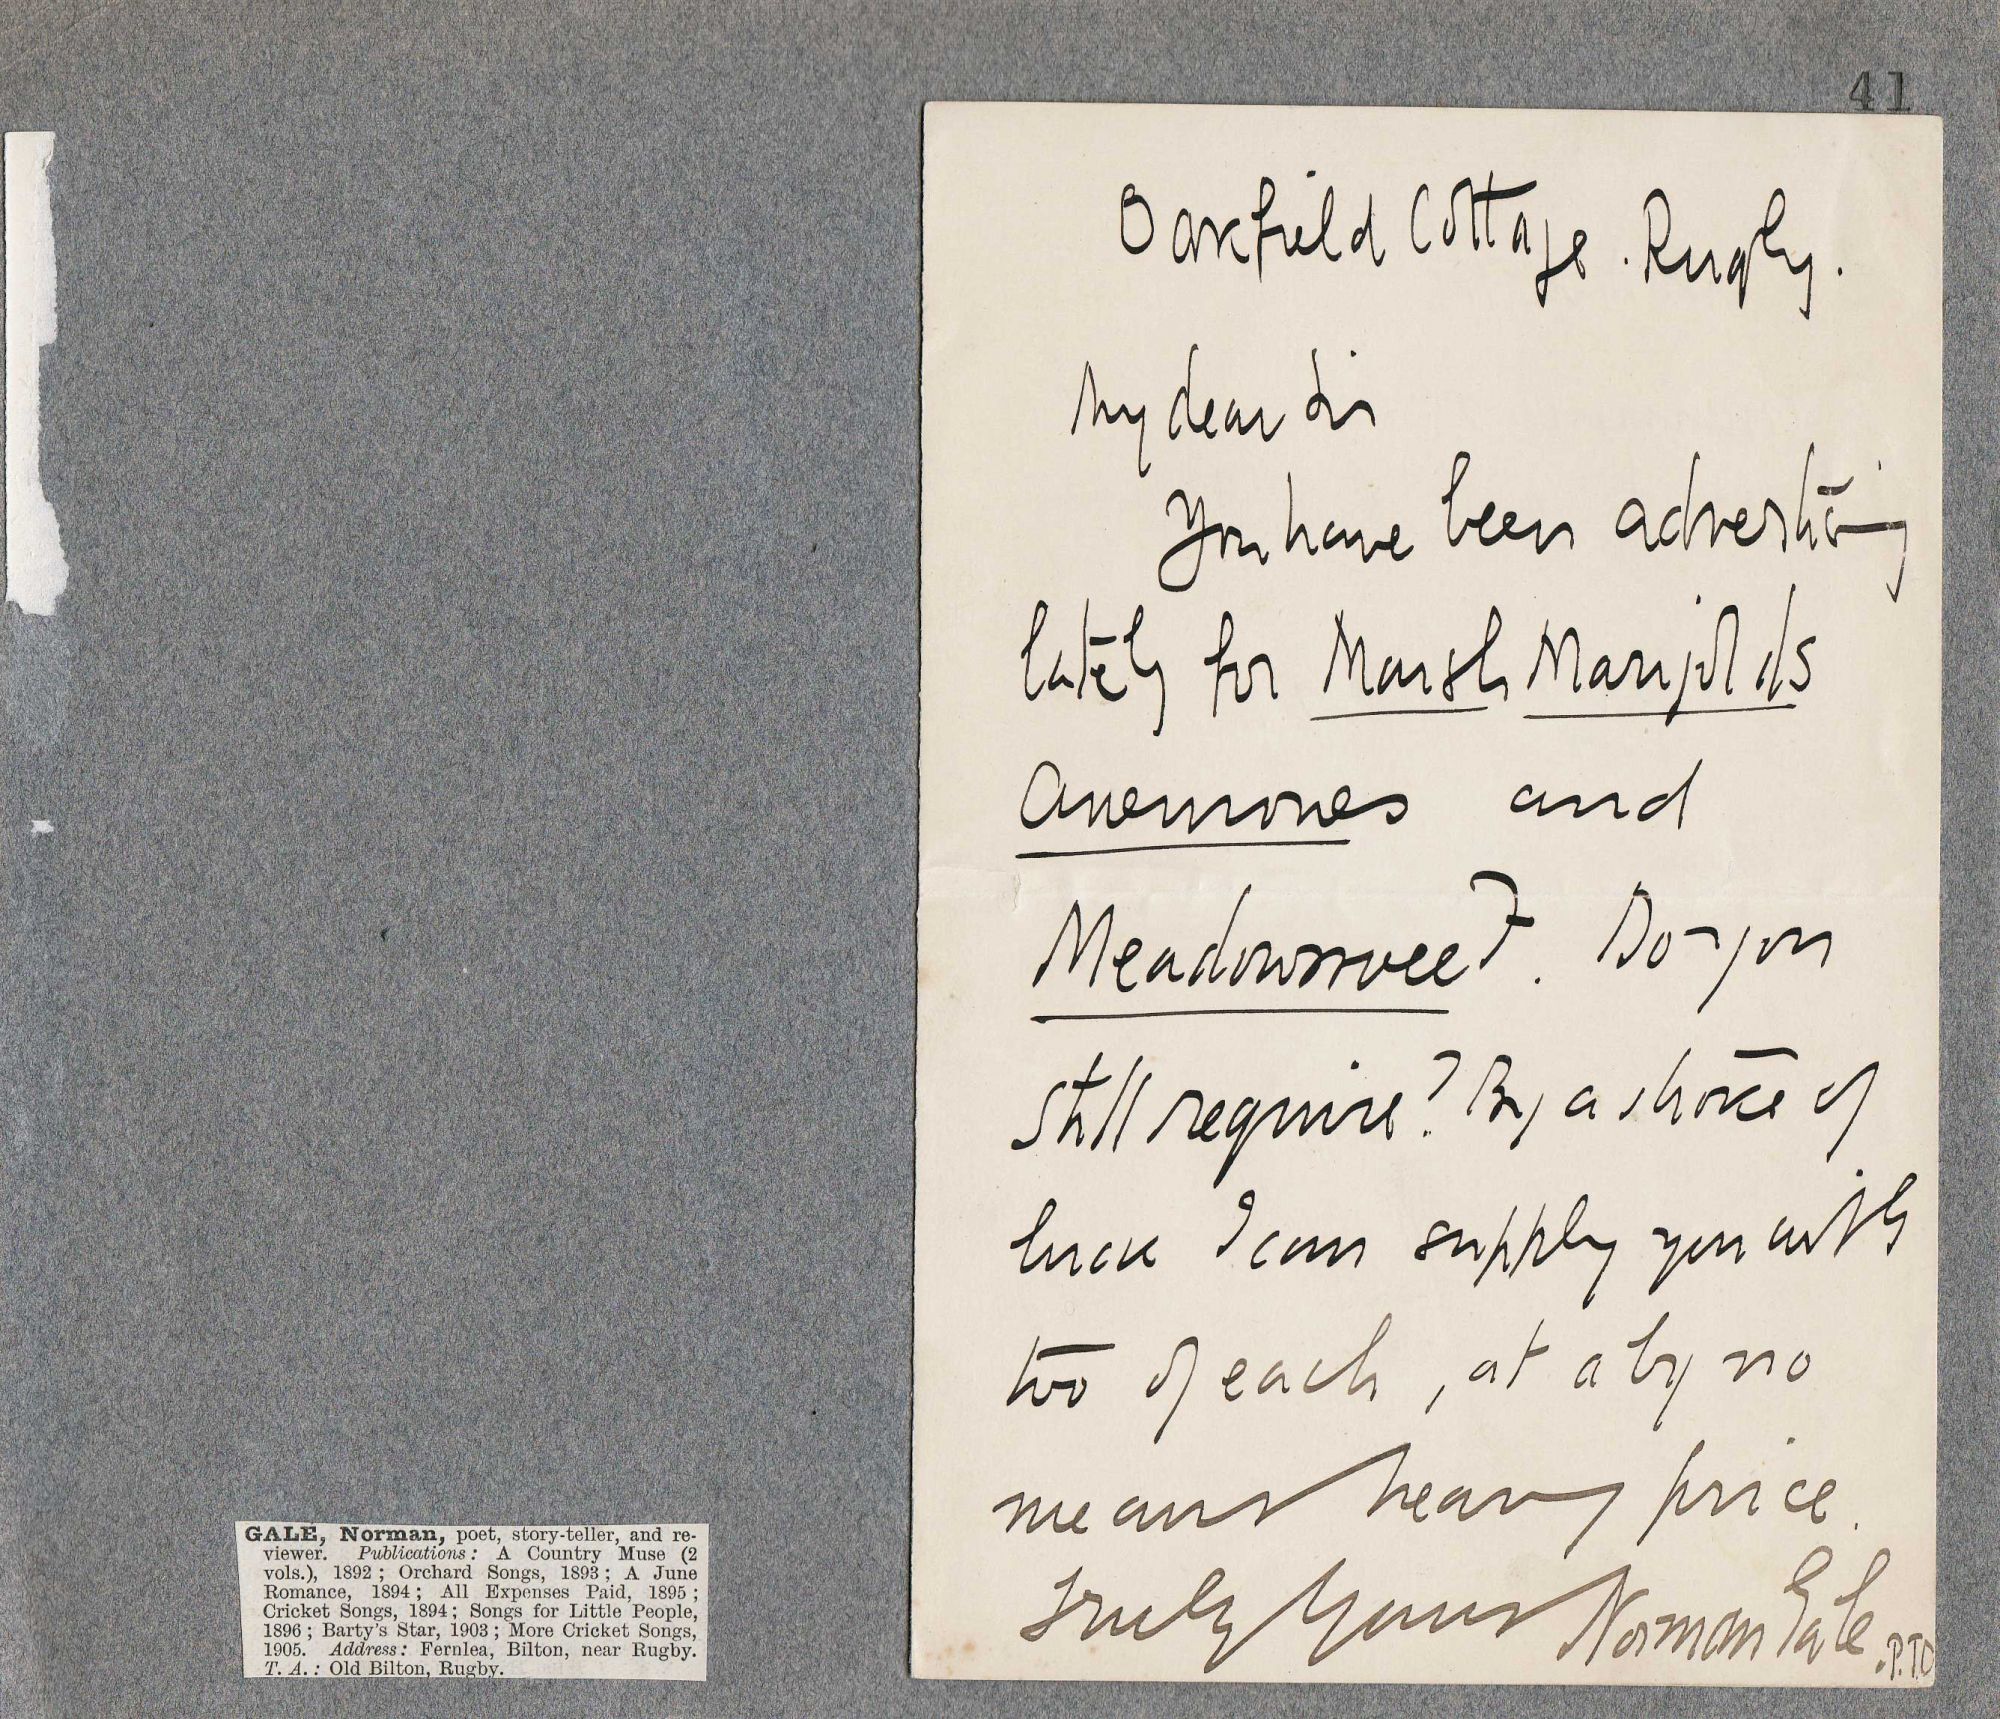 41
Oakfield Cottage. Rugby.
My dear Sir
You have been advertising
lately for Marsh Marigolds
Anemones and
Meadowsweet. Do you
still require? By a stroke of
luck I can supply you with
two of each, at a by no
means heavy price.
Truly Yours Norman Gale
.P.T.O
GALE, Norman, poet, story-teller, and re-
viewer. Publications: A Country Muse (2
vols.), 1892; Orchard Songs, 1893; A June
Romance, 1894; All Expenses Paid, 1895;
Cricket Songs, 1894; Songs for Little People,
1896; Barty's Star, 1903; More Cricket Songs,
1905. Address: Fernlea, Bilton, near Rugby.
T. A.: Old Bilton, Rugby.